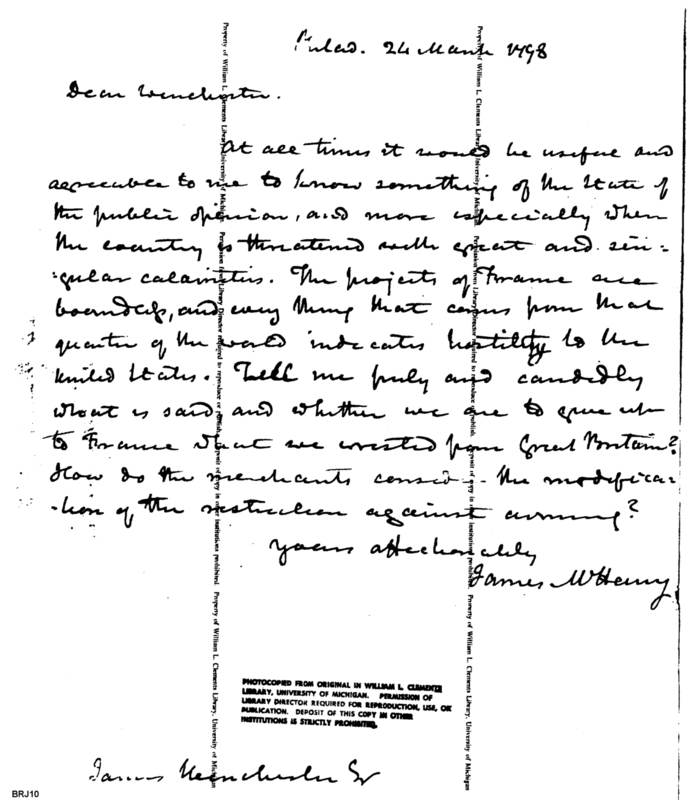 Philad. 24 March 1798
Dear Winchester.
At all times it would be useful and
agreeable to me to know something of the State of
the public opinion, and more especially when
the country is threatened with great and sin-
-gular calamities. The projects of France are
boundless, and every thing that comes from that
quarter of the world indicates hostility to the
United States. Tell me fully and candidly
what is said and whether we are to give up
to France what we wrested from Great Britain?
How do the merchants the modifica-
-tion of the restriction against arming?
Yours affectionately
James McHenry
PHOTOCOPIED FROM ORIGINAL IN WILLIAM L. CLEMENTS
LIBRARY, UNIVERSITY OF MICHIGAN. PERMISSION OF
LIBRARY DIRECTOR REQUIRED FOR REPRODUCTION, USE, OR
PUBLICATION. DEPOSIT OF THIS COPY IN OTHER
INSTITUTIONS IS STRICTLY PROHIBITED.
James Winchester Esqr
BRJ10
Property of William L. Clements Library, University of Michigan. Permission from Library Director required to reproduce or publish. Deposit of copy in other institutions prohibited. Property of William L. Clements Library, University of Michigan
Property of William L. Clements Library, University of Michigan. Permission from Library Director required to reproduce or publish. Deposit of copy in other institutions prohibited. Property of William L. Clements Library, University of Michigan